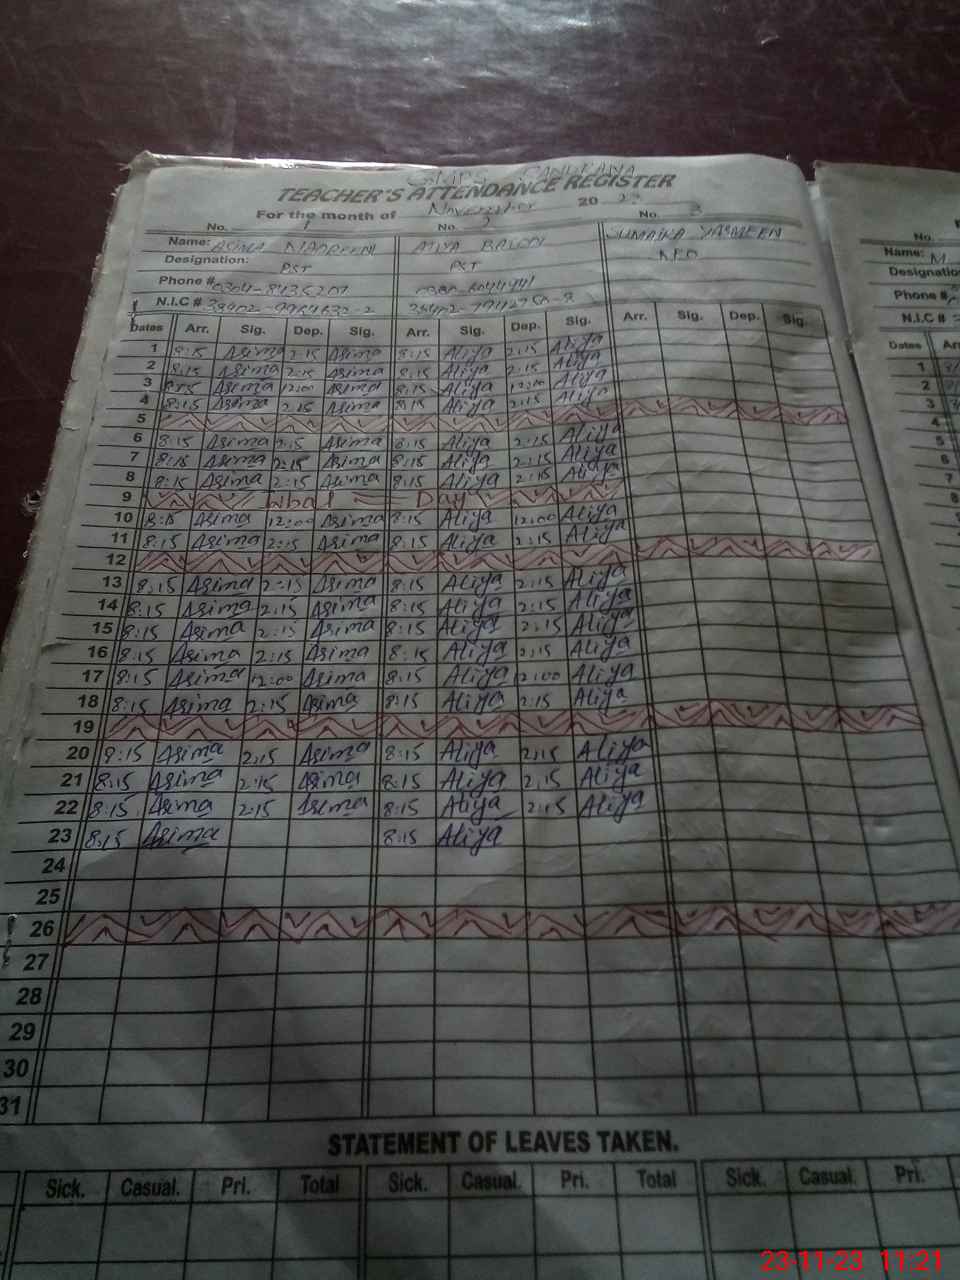 TEACHER'S ATTENDANCE REGISTER
For the month of November 20 23
No. 1 No. 2 No. 3
Name: ASIMA NADREEN ATIYA BATOOL SUMAIRA YASMEEN
Designation: PST PST
Phone #
N.I.C #
Dates Arr. Sig. Dep. Sig. Arr. Sig. Dep. Sig. Arr. Sig. Dep. Sig.
1 8:15 Asima 2:15 Asima 8:15 Atiya 2:15 Atiya
2 8:15 Asima 2:15 Asima 8:15 Atiya 2:15 Atiya
3 8:15 Asima 12:00 Asima 8:15 Atiya 12:00 Atiya
4 8:15 Asima 2:15 Asima 8:15 Atiya 2:15 Atiya
5
6 8:15 Asima 2:15 Asima 8:15 Atiya 2:15 Atiya
7 8:15 Asima 2:15 Asima 8:15 Atiya 2:15 Atiya
8 8:15 Asima 2:15 Asima 8:15 Atiya 2:15 Atiya
9 Iqbal Day
10 8:15 Asima 12:00 Asima 8:15 Atiya 12:00 Atiya
11 8:15 Asima 2:15 Asima 8:15 Atiya 2:15 Atiya
12
13 8:15 Asima 2:15 Asima 8:15 Atiya 2:15 Atiya
14 8:15 Asima 2:15 Asima 8:15 Atiya 2:15 Atiya
15 8:15 Asima 2:15 Asima 8:15 Atiya 2:15 Atiya
16 8:15 Asima 2:15 Asima 8:15 Atiya 2:15 Atiya
17 8:15 Asima 12:00 Asima 8:15 Atiya 12:00 Atiya
18 8:15 Asima 2:15 Asima 8:15 Atiya 2:15 Atiya
19
20 8:15 Asima 2:15 Asima 8:15 Atiya 2:15 Atiya
21 8:15 Asima 2:15 Asima 8:15 Atiya 2:15 Atiya
22 8:15 Asima 2:15 Asima 8:15 Atiya 2:15 Atiya
23 8:15 Asima 8:15 Atiya
24
25
26
27
28
29
30
31
STATEMENT OF LEAVES TAKEN.
Sick. Casual. Pri. Total Sick. Casual. Pri. Total Sick. Casual. Pri.
No.
Name: M
Designation
Phone #
N.I.C #
Dates
1
2
3
4
5
6
7
8
23-11-23 11:21